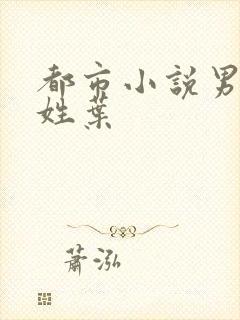 都市小説男
姓葉
蕭泓